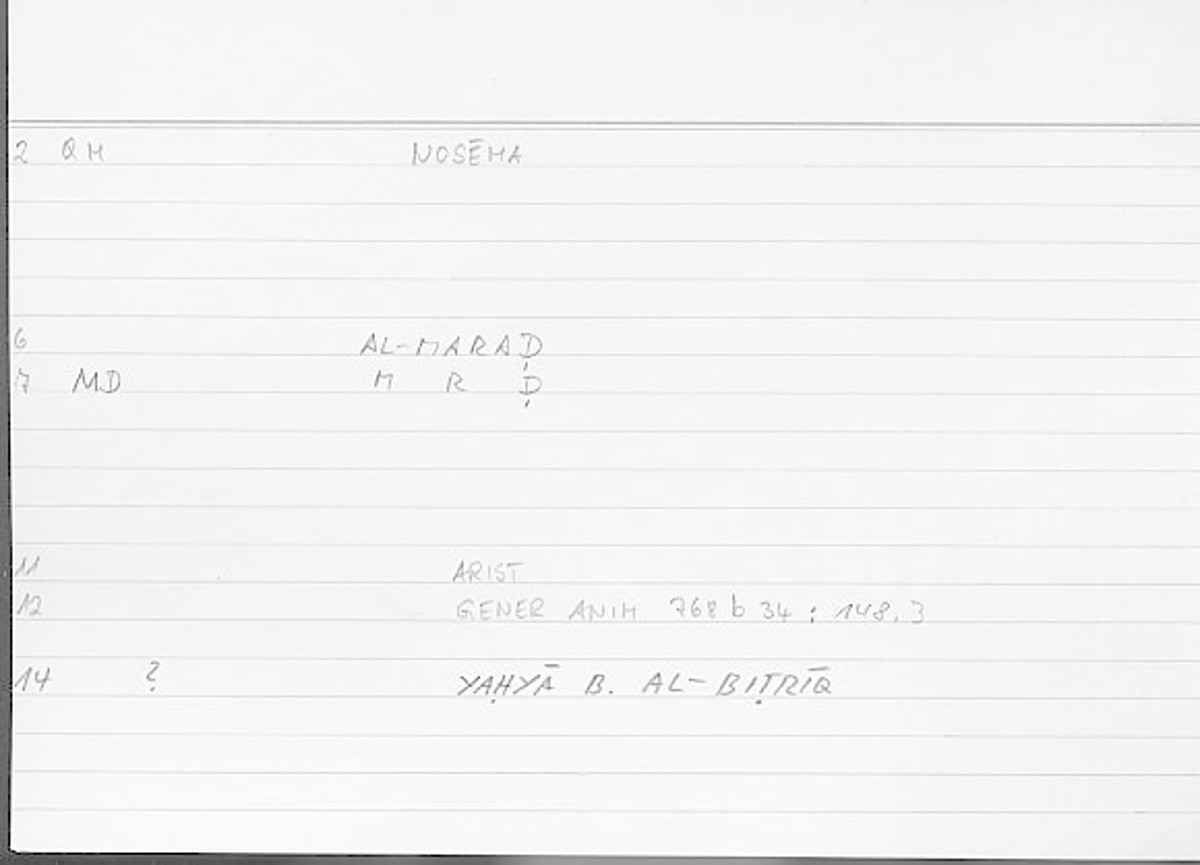 2 QM NOSĒMA
6 AL-MARAḌ
7 MD M R Ḍ
11 ARIST
12 GENER ANIM 768 b 34 : 148.3
14 ? YAḤYĀ B. AL-BIṬRĪQ